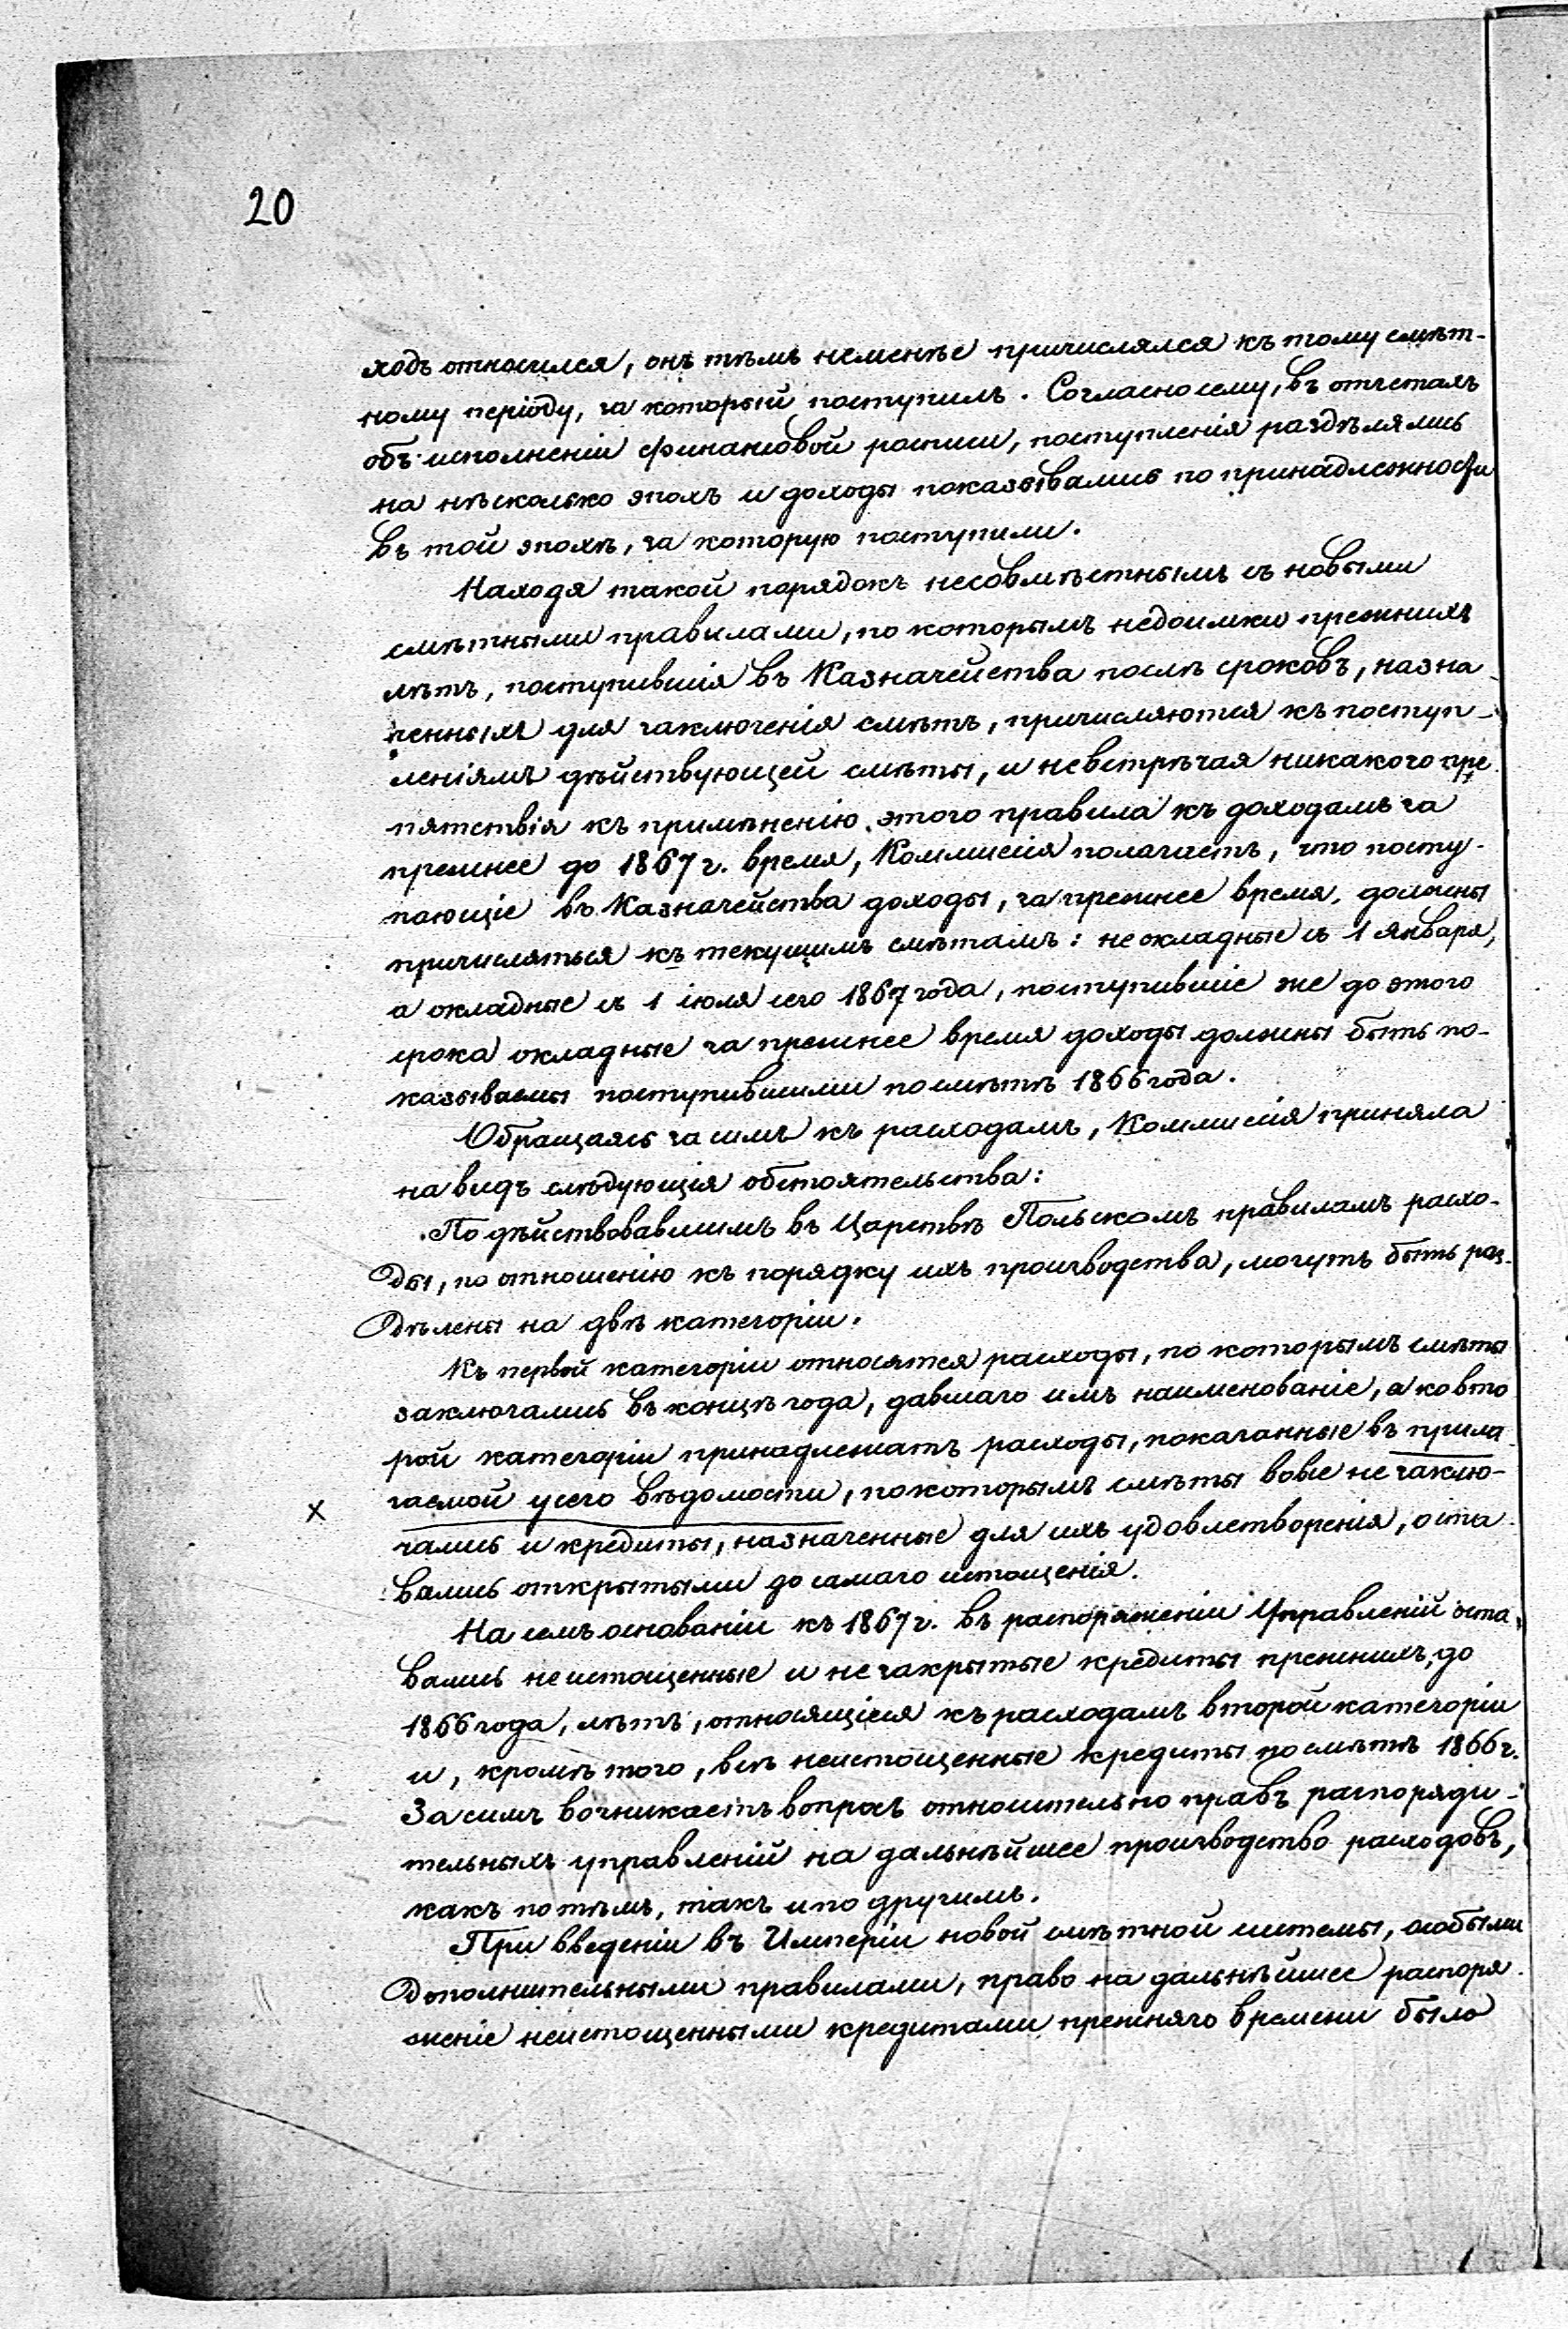 20
ходъ относился, онъ тѣмъ неменѣе причислялся къ тому смѣт-
ному періоду, за который поступилъ. Согласно сему, въ отчетахъ
объ исполненіи финансовой росписи, поступленія раздѣлялись
на нѣсколько эпохъ и доходы показывались по принадлежности
въ той эпохѣ, за которую поступили.
Находя такой порядокъ несовмѣстнымъ съ новыми
смѣтными правилами, по которымъ недоимки прежнихъ
лѣтъ, поступившія въ Казначейства послѣ сроковъ, назна-
ченныхъ для заключенія смѣтъ, причисляются къ поступ-
леніямъ дѣйствующей смѣты, и невстрѣчая никакого пре-
пятствія къ примѣненію этого правила къ доходамъ за
прежнее до 1867 г. время, Коммисія полагаетъ, что посту-
пающіе въ Казначейства доходы, за прежнее время, должны
причисляться къ текущимъ смѣтамъ: неокладные съ 1 Января,
а окладные съ 1 іюля сего 1867 года, поступившіе же до этого
срока окладные за прежнее время доходы должны быть по-
казываемы поступившими по смѣтѣ 1866 года.
Обращаясь за симъ къ расходамъ, Коммисія приняла
на видъ слѣдующія обстоятельства:
По дѣйствовавшимъ въ Царствѣ Польскомъ правиламъ расхо-
ды, по отношенію къ порядку ихъ производства, могутъ быть раз-
дѣлены на двѣ категоріи.
Къ первой категоріи относятся расходы, по которымъ смѣты
заключались въ концѣ года, давшаго имъ наименованіе, а ко вто
рой категоріи принадлежатъ расходы, показанные въ прила-
х гаемой у сего вѣдомости, по которымъ смѣты вовсе не заклю-
чались и кредиты, назначенные для ихъ удовлетворенія, оста-
вались открытыми до самаго истощенія.
На семъ основаніи къ 1867 г. въ распоряженіи Управленій оста-
вались неистощенные и не закрытые кредиты прежнихъ, до
1866 года, лѣтъ, относящіеся къ расходамъ второй категоріи
и, кромѣ того, всѣ неистощенные кредиты по смѣтѣ 1866 г.
За симъ возникаетъ вопросъ относительно правъ распоряди-
тельныхъ управленій на дальнѣйшее производство расходовъ,
какъ по тѣмъ, такъ и по другимъ.
При введеніи въ Имперіи новой смѣтной системы, особыми
дополнительными правилами, право на дальнѣйшее распоря-
женіе неистощенными кредитами прежняго времени было